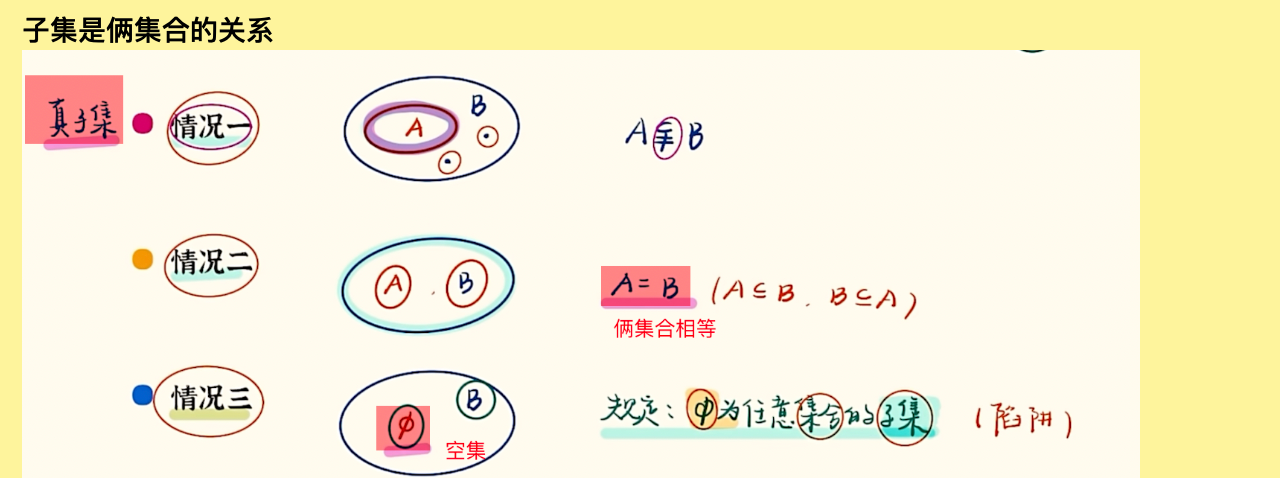 子集是俩集合的关系
真子集 情况一 A B A⫋B
情况二 A B A=B (A⊆B. B⊆A)
俩集合相等
情况三 φ B 规定: φ为任意集合的子集 (陷阱)
空集